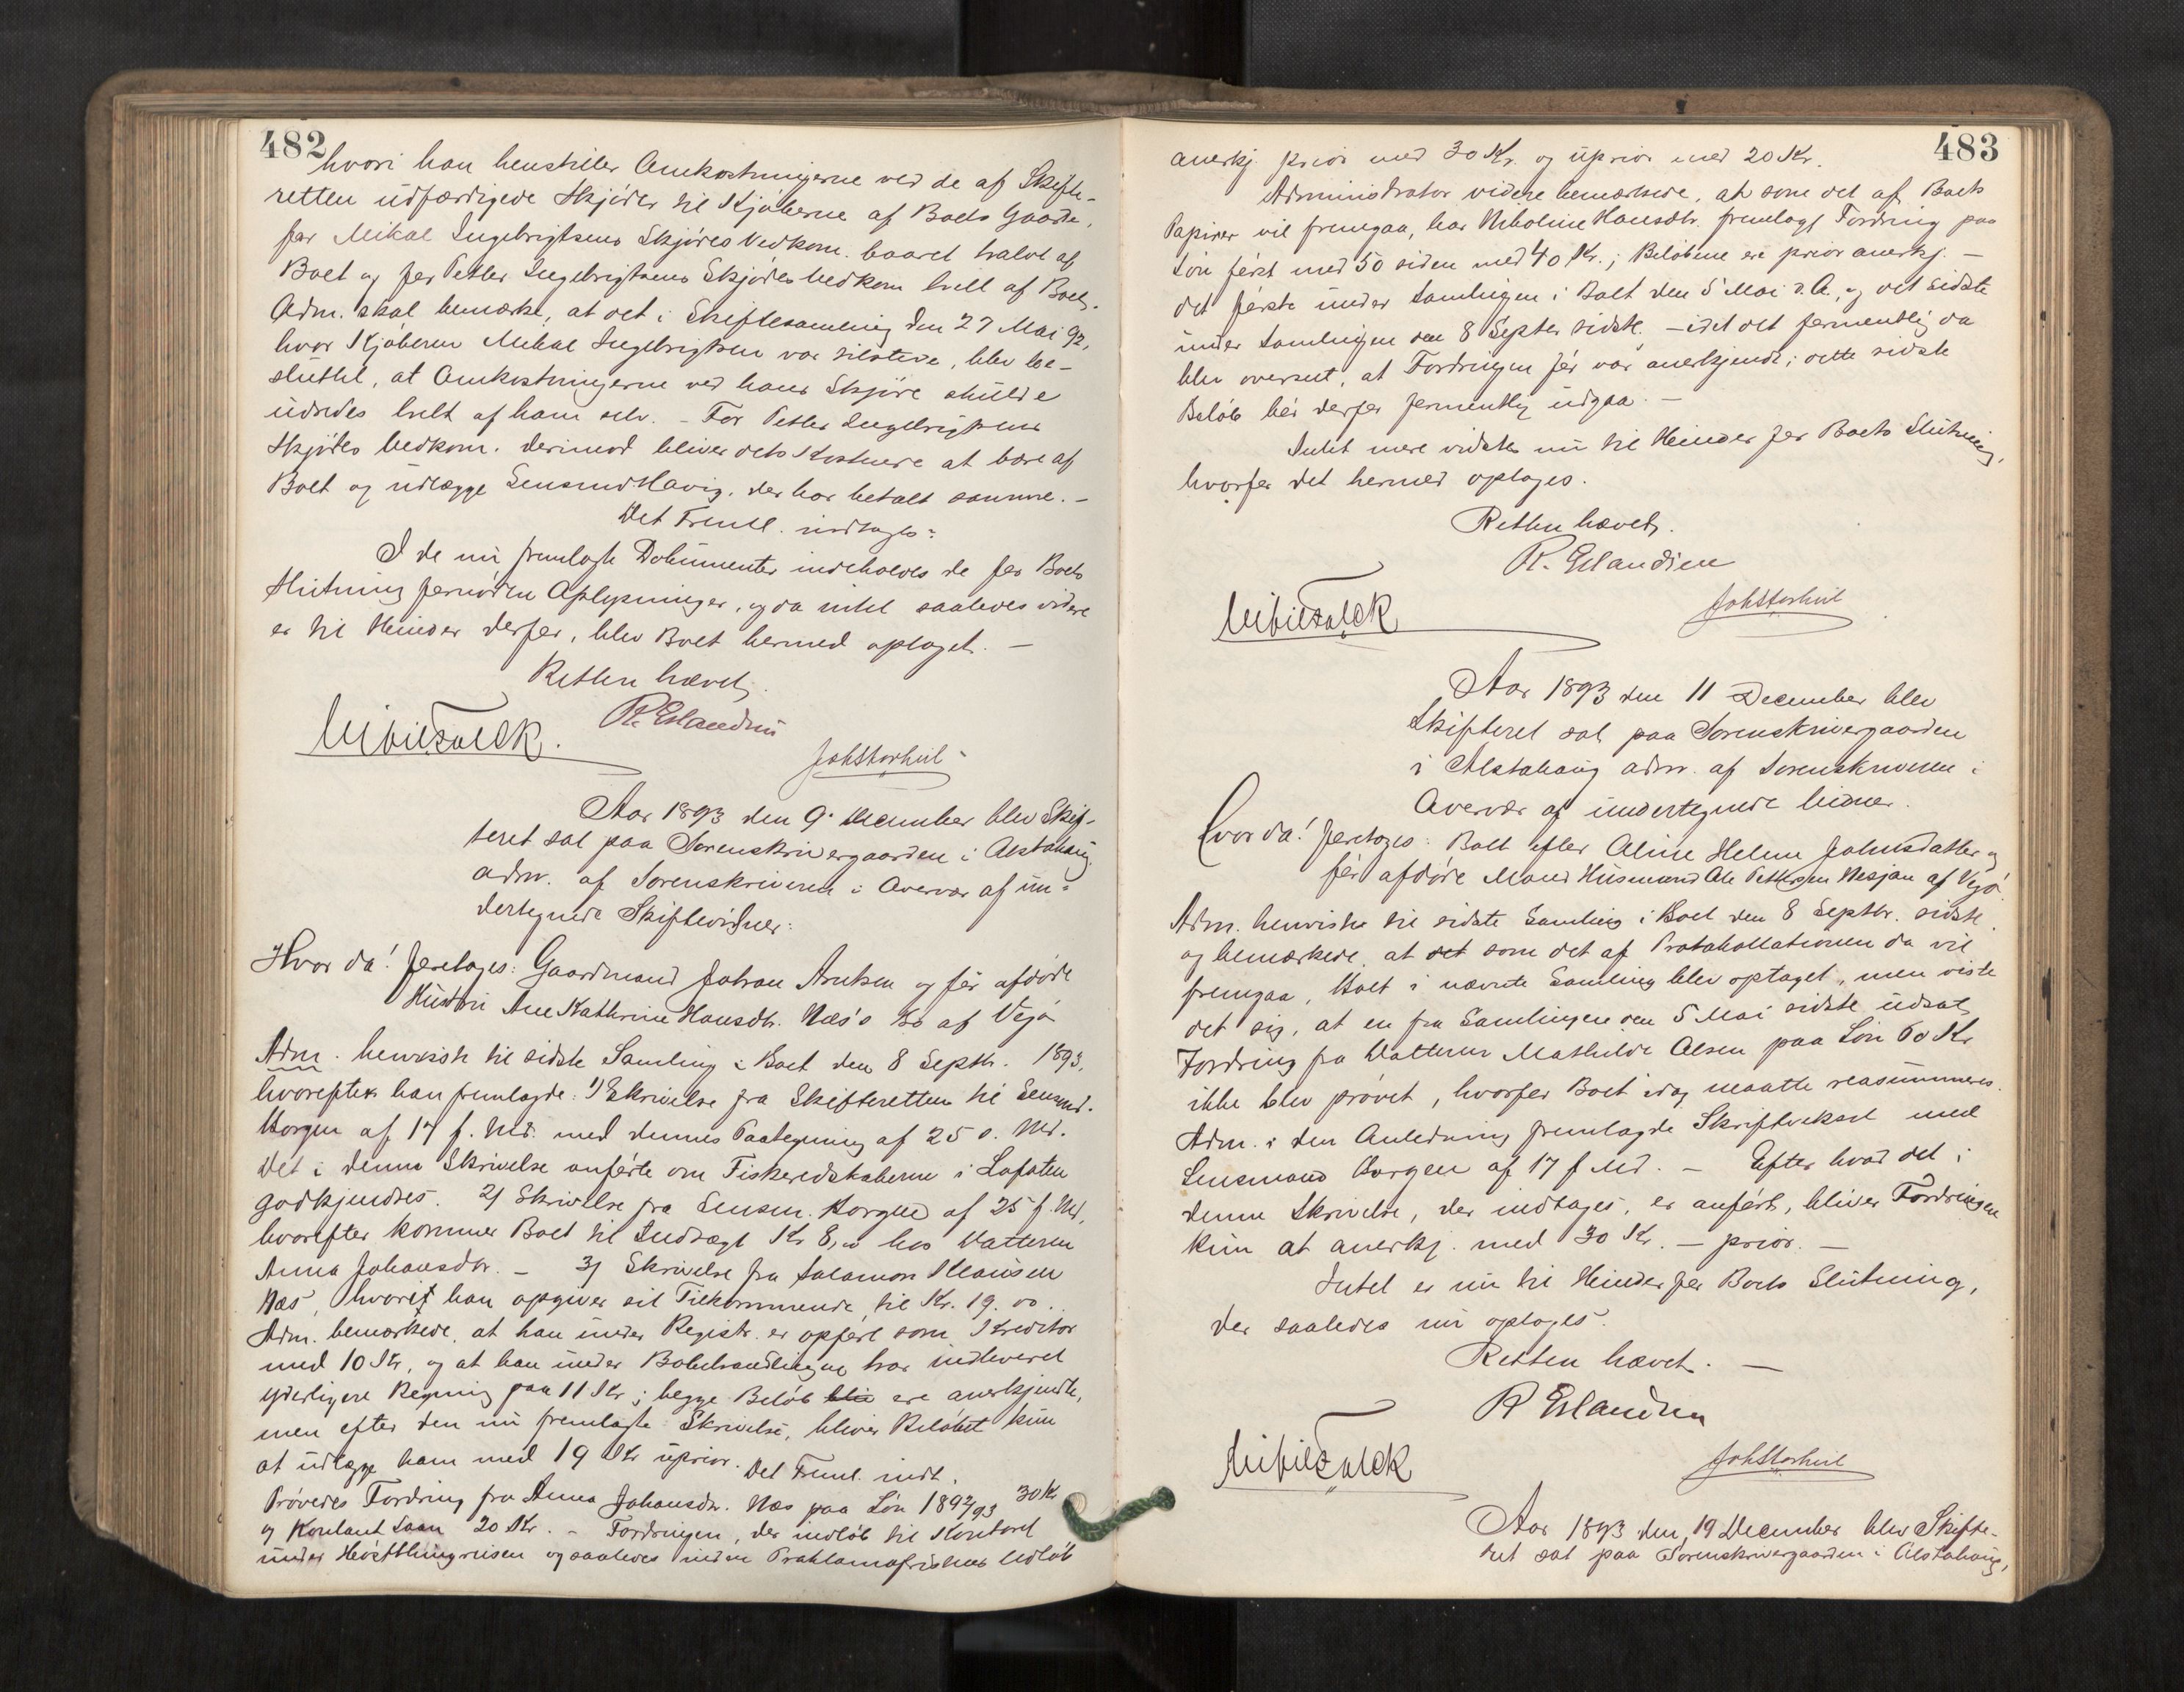 482
hvori han henstiller Omkostningerne ved de af Skifte-
retten udfærdigede Skjøder til Kjøberne af Boets Gaarde,
før Mikal Ingebrigtsens Skjødes Vedkom. baaret halvt af
Boet og for Petter Ingebrigtsens Skjødes Vedkom helt af Boet.
Adm. skal bemærke, at det i Skiftesamling den 27 Mai 92,
hvor Kjøberen Mikal Ingebrigtsen var tilstede, blev be-
sluttet, at Omkostningerne ved hans Skjøde skulde
udredes helt af ham selv. – For Petter Ingebrigtsens
Skjødes Vedkom. derimod bliver dets Kostende at bære af
Boet og udlægge Lensmd Havig, der har betalt samme. –
Det Freml. indtages:
I de nu fremlagte Dokumenter indeholdes de for Boets
Slutning fornødne Oplysninger, og da intet saaledes videre
er til Hinder derfor, blev Boet hermed optaget. –
Retten hævet.
R. Erlandsen
JohStorhul
Aar 1893 den 9. December blev Skif-
teret sat paa Sorenskrivergaarden i Alstahaug
adm. af Sorenskriveren i Overvær af un-
dertegnede Skiftevidner:
Hvor da! foretoges: Gaardmand Johan Arntsen og før afdøde
Hustru Ane Kathrine Hansdtr. Næs's bo af Vegø
Adm. henviste til sidste Samling i Boet den 8 Septbr. 1893,
hvorefter han fremlagde: 1) Skrivelse fra Skifteretten til Lensmd.
Horgen af 17 f. Md. med dennes Paategning af 25 s. Md.
Det i denne Skrivelse anførte om Fiskeredskaberne i Lofoten
godkjendtes. 2) Skrivelse fra Lensm. Horgen af 25 f. Md,
hvorefter kommer Boet til Indtægt Kr 8,00 hos Datteren
Anna Johansdtr. – 3) Skrivelse fra Salamon Klausen
Næs, hvorit han opgiver sit Tilkommende til Kr. 19.00.
Adm. bemærkede, at han under Registr. er opført som Kreditor
med 10 Kr, og at han under Bobehandlingen har indleveret
yderligere Regning paa 11 Kr; begge Beløb blev ere anerkjendte,
men efter den nu fremlagte Skrivelse, bliver Beløbet kun
at udlægge ham med 19 Kr uprior. Det Freml. indt.
Prøvedes Fordring fra Anna Johansdtr. Næs paa Løn 1892/93 30 Kr
og Kontant Laan 20 Kr. – Fordringen, der indløb til Kontoret
under Høstthingreisen og saaledes inden Proklamafristens Udløb
483
anerkj. prior med 30 Kr. og uprior med 20 Kr.
Administrator videre bemærkede, at som det af Boets
Papirer vil fremgaa, har Nikoline Hansdtr. fremlagt Fordring paa
Løn først med 50 siden med 40 Kr.; Beløbene ere prior anerkj. –
det første under Samlingen i Boet den 5 Mai d.A., og det sidste
under Samlingen den 8 Septbr sidstl. – idet det formentlig da
blev overseet, at Fordringen før var anerkjendt; dette sidste
Beløb bør derfor formentlig udgaa. –
Intet mere vidstes nu til Hinder for Boets Slutning,
hvorfor det hermed optages.
Retten hævet.
R. Erlandsen
JohStorhul
Aar 1893 den 11 December blev
Skifteret sat paa Sorenskrivergaarden
i Alstahaug adm. af Sorenskriveren i
Overvær af undertegnede Vidner.
Hvor da! foretoges: Boet efter Aline Helene Johnsdatter og
før afdøde Mand Husmand Ole Pettersen Nesjan af Vegø.
Adm. henviste til sidste Samling i Boet den 8 Septbr. sidstl.
og bemærkede, at det som det af Protokollationen da vil
fremgaa, Boet i nævnte Samling blev optaget, men viste
det sig, at en fra Samlingen den 5 Mai sidstl. udsat
Fordring fra Datteren Mathilde Olsen paa Løn 60 Kr
ikke blev prøvet, hvorfor Boet idag maatte reasummeres.
Adm. i den Anledning fremlagde Skriftveksel med
Lensmand Horgen af 17 f Md. – Efter hvad det i
denne Skrivelse, der indtages, er anført, bliver Fordringen
kun at anerkj. med 30 Kr. – prior. –
Intet er nu til Hinder for Boets Slutning,
der saaledes nu optoges.
Retten hævet. –
R Erlandsen
JohStorhul
Aar 1893 den 19 December blev Skifte-
ret sat paa Sorenskrivergaarden i Alstahaug,